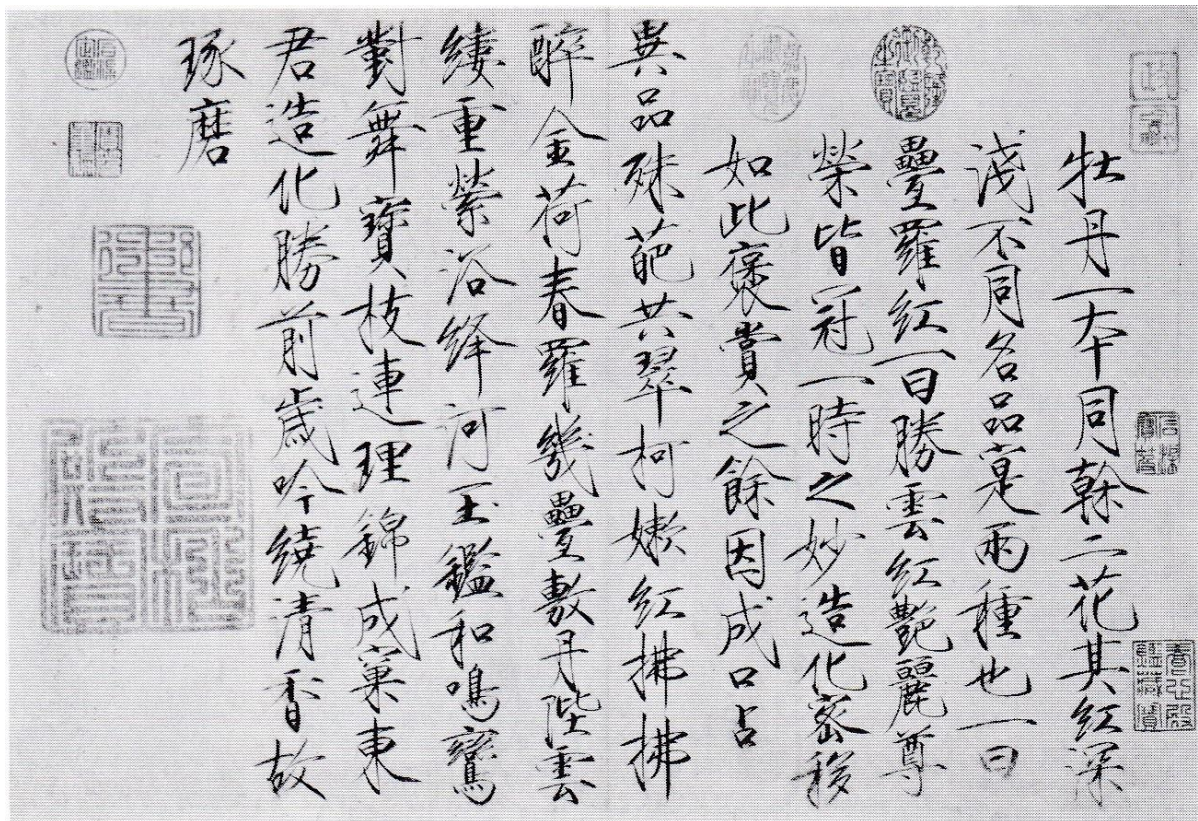 石渠寶笈
養心殿鑑藏寶
牡丹一本同幹二花其紅深
淺不同名品寔兩種也一曰
乾隆御覽之寶
疊羅紅一曰勝雲紅艷麗尊
榮皆冠一時之妙造化密移
如此褒賞之餘因成口占
異品殊葩共翠柯嫩紅拂拂
醉金荷春羅幾疊敷丹陛雲
縷重縈浴絳河玉鑑和鳴鸞
對舞寶枝連理錦成窠東
君造化勝前歲吟繞清香故
琢磨
御書